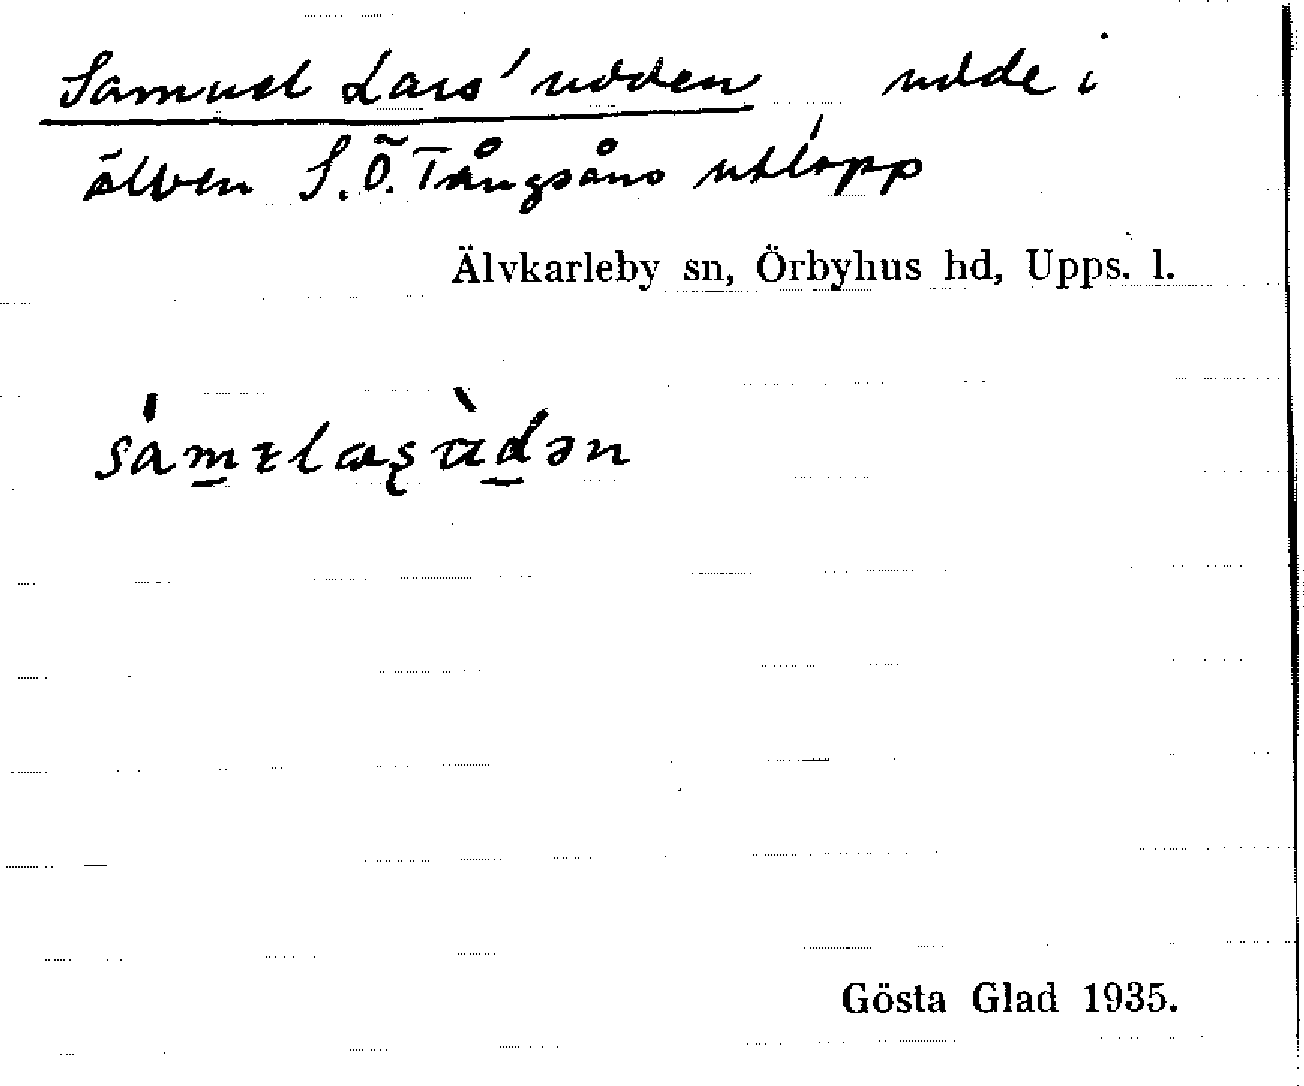 Samuel Lars' udden udde i
älven S.Ö. Tångsåns utlopp
Älvkarleby sn, Örbyhus hd, Upps. l.
Gösta Glad 1935.